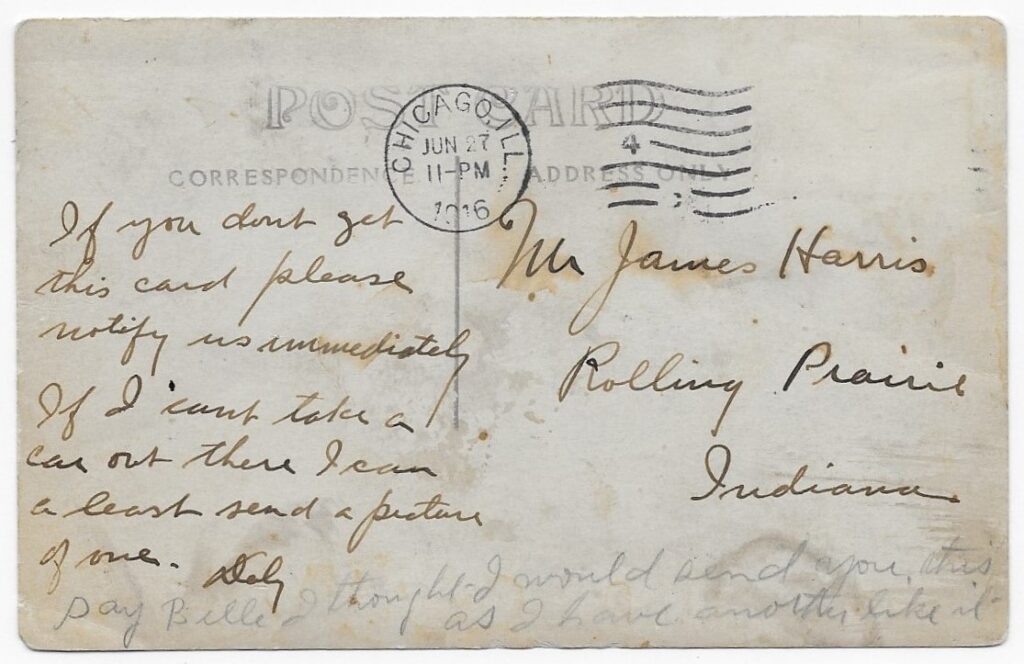 POST CARD
CHICAGO, ILL.
JUN 27
11-PM
1916
4
CORRESPONDENCE
ADDRESS ONLY
If you dont get
this card please
notify us immediately
If I cant take a
car out there I can
a least send a picture
of one.
Mr James Harris
Rolling Prairie
Indiana
Say Bille I thought I would send you this
as I have another like it